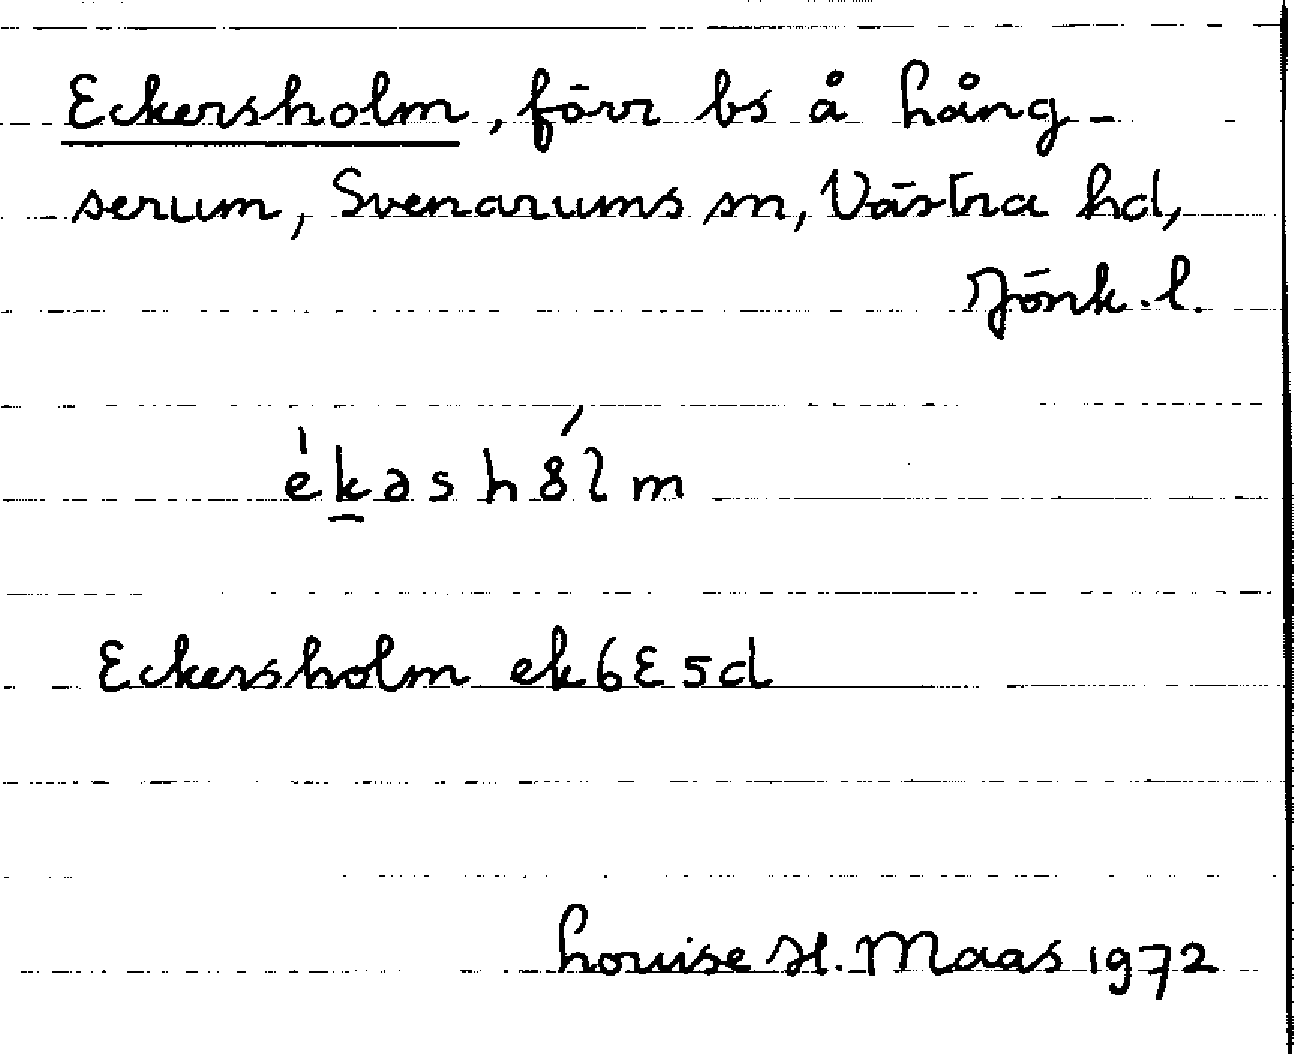 Eckersholm, förr bs å Lång-
serum, Svenarums sn, Västra hd,
Jönk. l.
ékashólm
Eckersholm ek6E5d
Louise H. Maas 1972